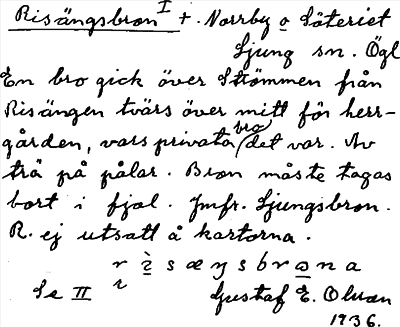 Risängsbron I +. Norrby o Säteriet
Ljung sn. Ögl
En bro gick över Strömmen från
Risängen tvärs över mitt för herr-
gården, vars privata bro det var. Av
trä på pålar. Bron måste tagas
bort i fjol. Jmfr. Ljungsbron.
R. ej utsatt å kartorna.
r ì s æ ŋ s b r ω n a
Se II Gustaf E. Olson
1936.